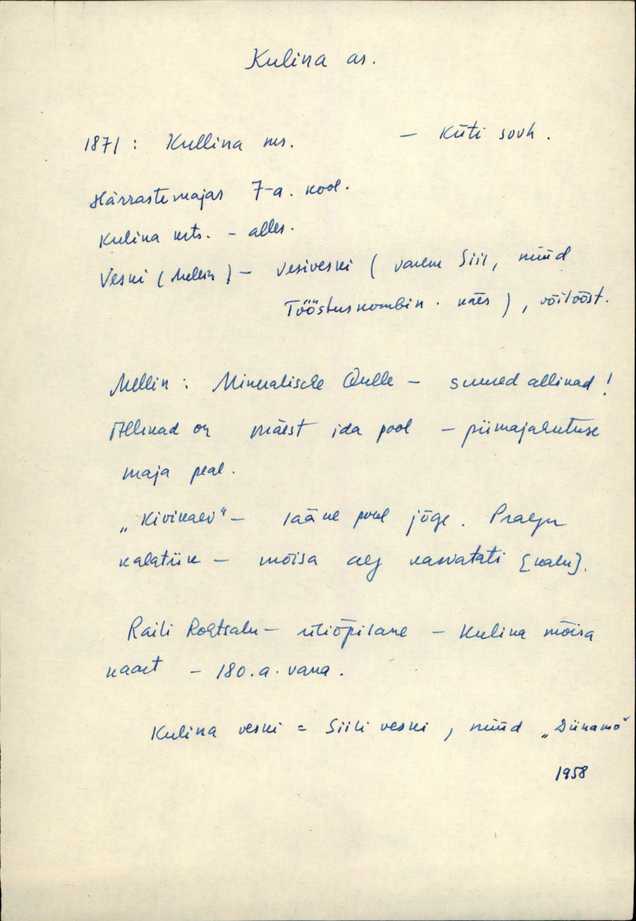 Kulina as.
1871 : Kullina ms. — Küti sovh.
Härrastemajas 7-a. kool.
Kulina krts. - alles.
Veski (Mellin) - vesiveski ( vanem Siil, nüüd
Tööstuskombin. käes ), võitööst.
Mellin : Mineralische Quelle - suured allikad !
Allikad on mäest ida pool - piimajahutuse
maja peal.
„Kivikaev" - lääne pool jõge. Praegu
kalatiik - mõisa aeg kasvatati [kalu].
Raili - üliõpilane - Kulina mõisa
kaart - 180.a. vana.
Kulina veski = Siili veski, nüüd „Dünamo"
1958